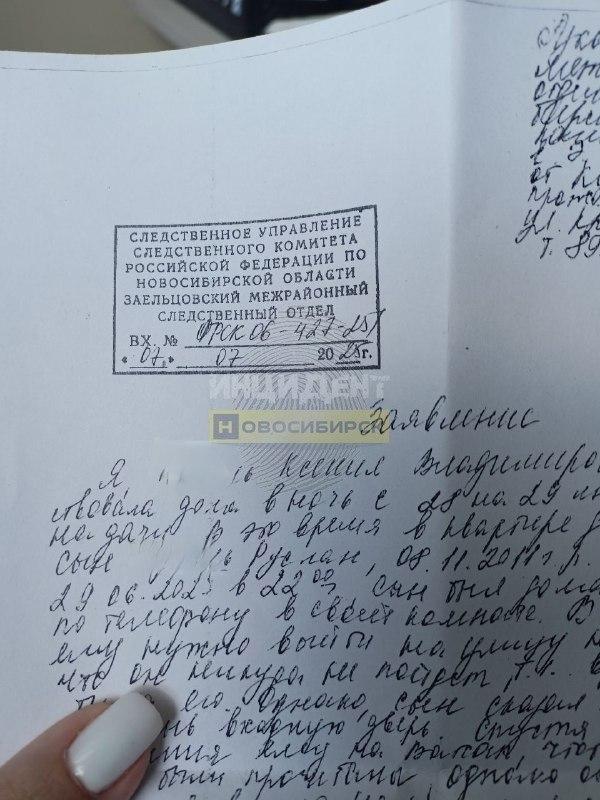 от
ул.
т. 89
СЛЕДСТВЕННОЕ УПРАВЛЕНИЕ
СЛЕДСТВЕННОГО КОМИТЕТА
РОССИЙСКОЙ ФЕДЕРАЦИИ ПО
НОВОСИБИРСКОЙ ОБЛАСТИ
ЗАЕЛЬЦОВСКИЙ МЕЖРАЙОННЫЙ
СЛЕДСТВЕННЫЙ ОТДЕЛ
ВХ. № 06-427-25/
« 07 » 07 2025 г.
ИНЦИДЕНТ
НОВОСИБИРСК
Заявление
Я Ксения Владимиров
ствовала дома в ночь с 28 на 29 ию
на даче. В это время в квартире
сын Руслан, 08.11.2011 г.
29.06.2025 в 22 00, сын был дома
по телефону в своей комнате. В
ему нужно выйти на улицу
что он никуда не пойдет, т.к.
его. Однако, сын сказал
входную дверь. Спустя
ему на ватсап, что
были прочитаны, однако